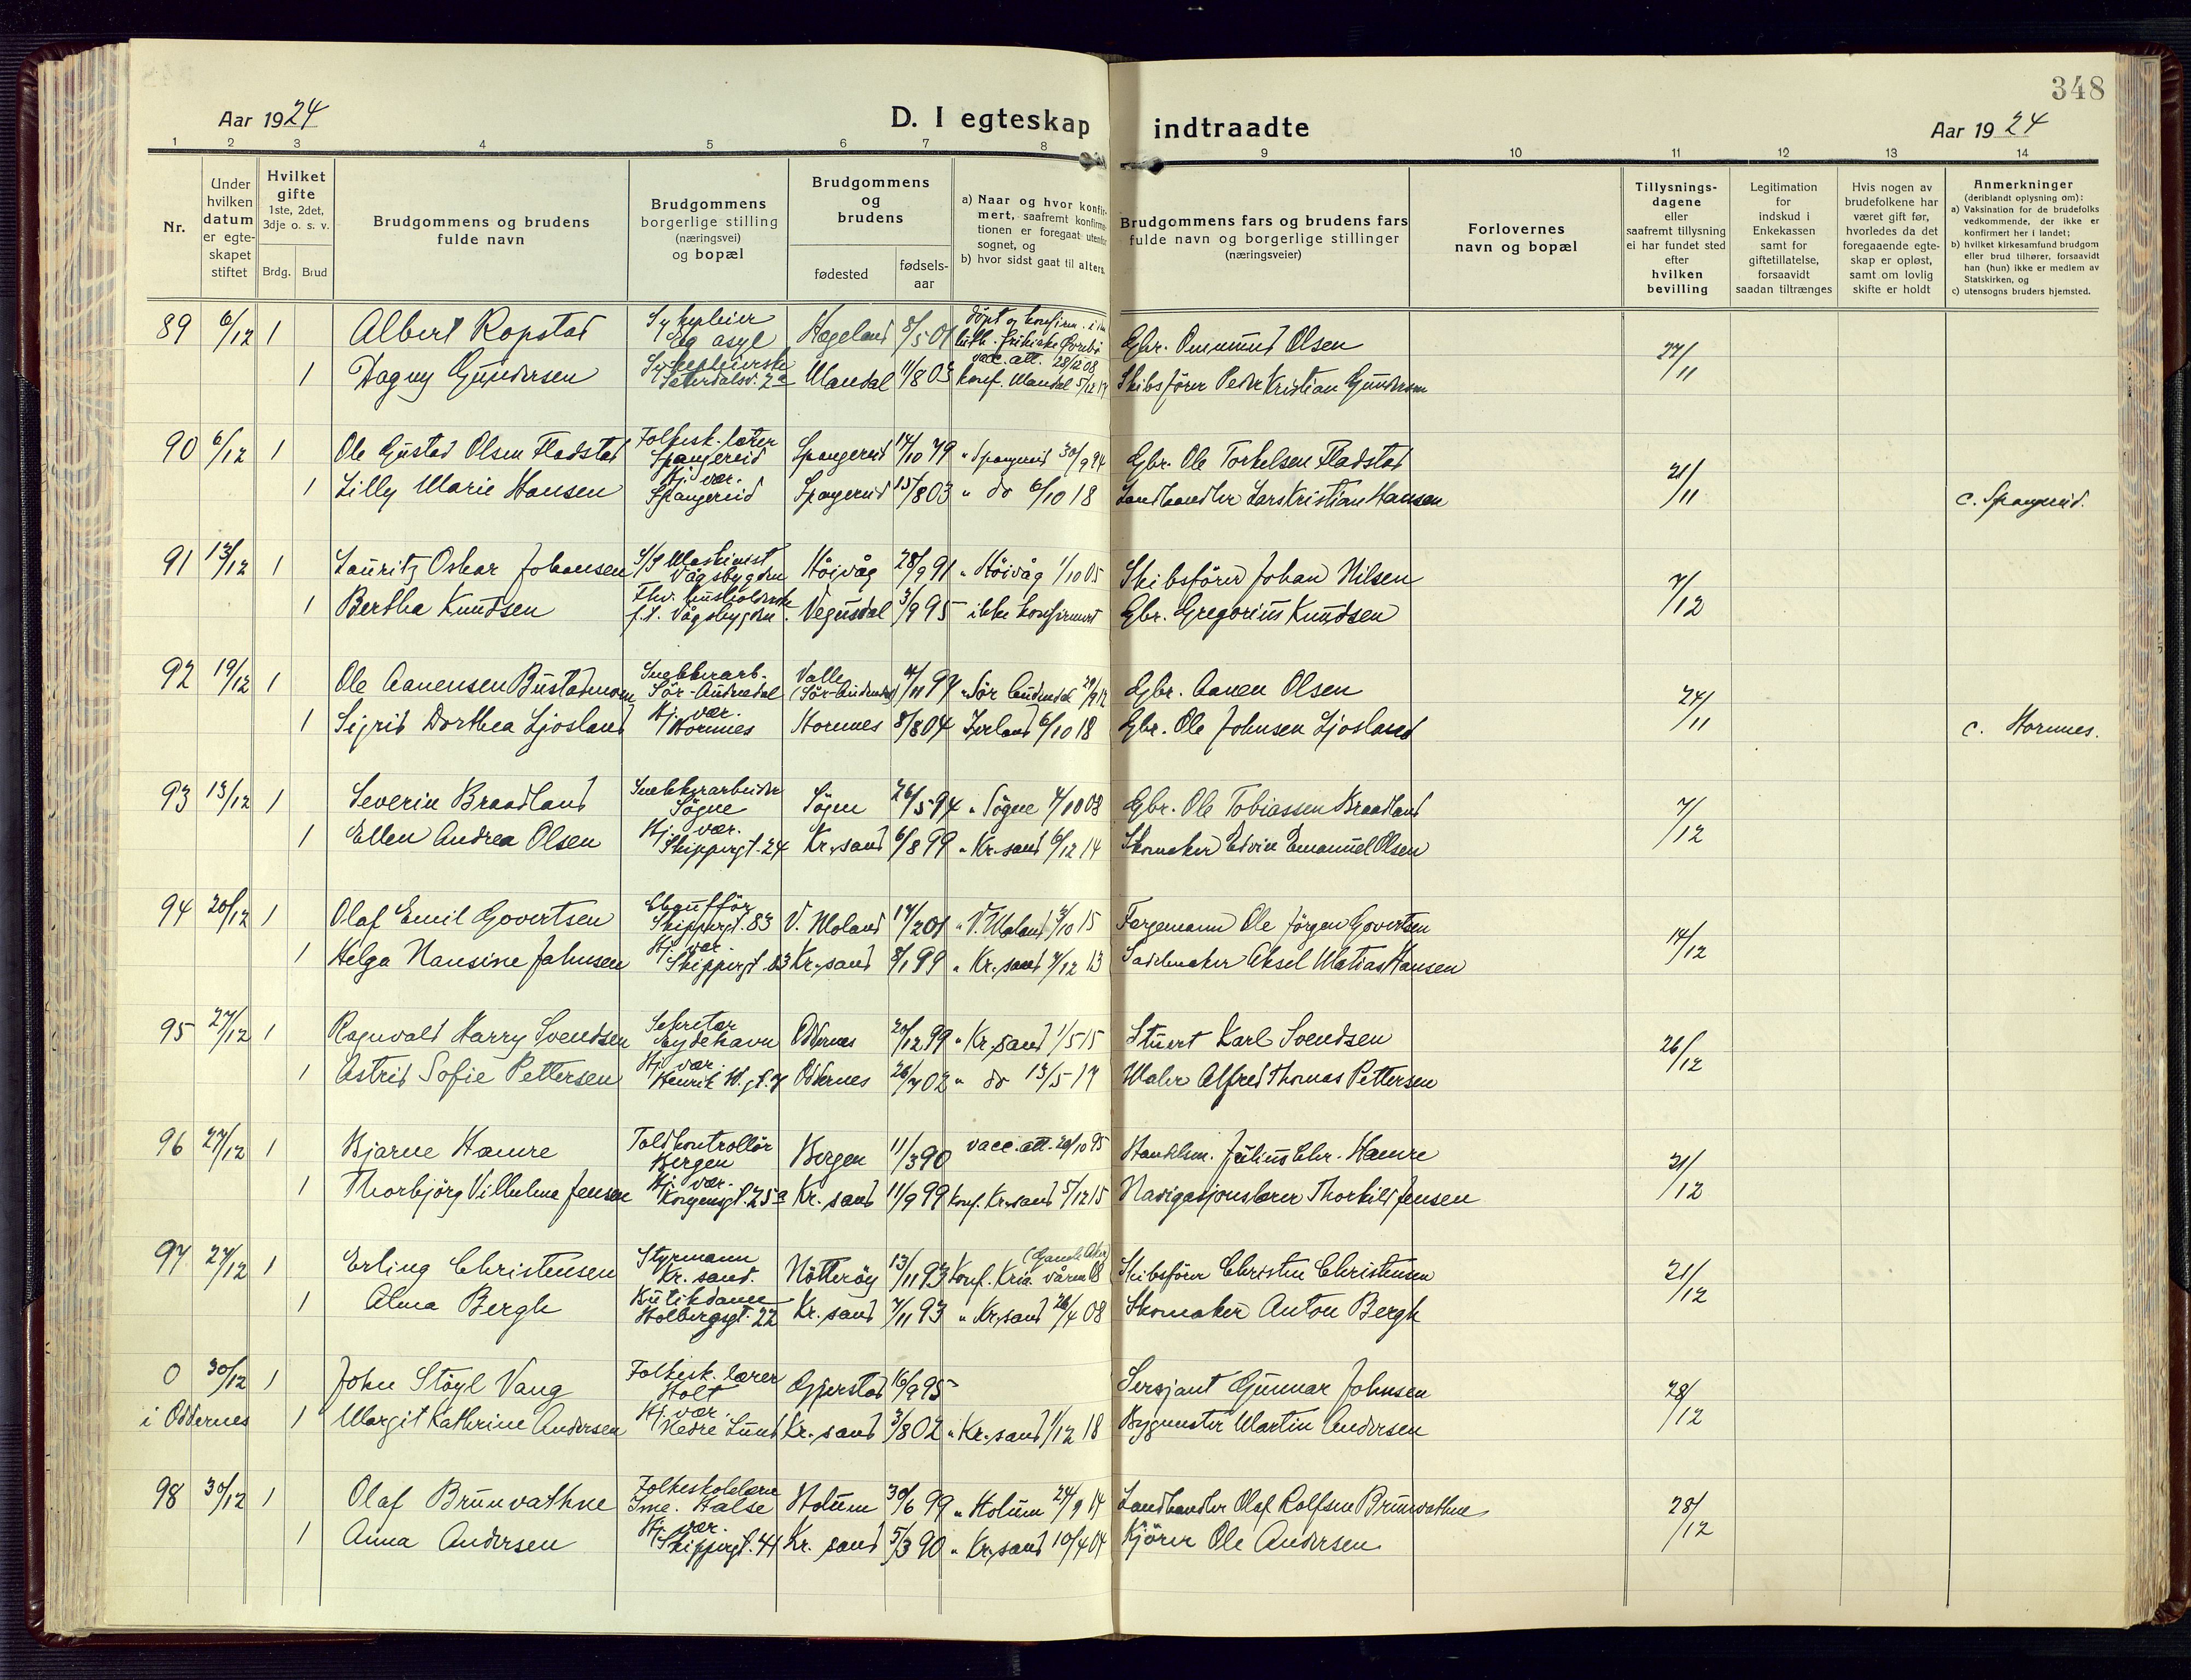 348
Aar 1924
D. I egteskap indtraadte
Aar 1924
1 2 3 4 5 6 7 8 9 10 11 12 13 14
Nr.
Under hvilken datum er egteskapet stiftet
Hvilket gifte 1ste, 2det, 3dje o. s. v.
Brdg. Brud
Brudgommens og brudens fulde navn
Brudgommens borgerlige stilling (næringsvei) og bopæl
Brudgommens og brudens
fødested
fødselsaar
a) Naar og hvor konfirmert, saafremt konfirmationen er foregaat utenfor sognet, og
b) hvor sidst gaat til alters.
Brudgommens fars og brudens fars fulde navn og borgerlige stillinger (næringsveier)
Forlovernes navn og bopæl
Tillysningsdagene eller saafremt tillysning ei har fundet sted efter hvilken bevilling
Legitimation for indskud i Enkekassen samt for giftetillatelse, forsaavidt saadan tiltrænges
Hvis nogen av brudefolkene har været gift før, hvorledes da det foregaaende egteskap er opløst, samt om lovlig skifte er holdt
Anmerkninger (deriblandt oplysning om):
a) Vaksination for de brudefolks vedkommende, der ikke er konfirmert her i landet;
b) hvilket kirkesamfund brudgom eller brud tilhører, forsaavidt han (hun) ikke er medlem av Statskirken, og
c) utensogns bruders hjemsted.
89 6/12 1 Albert Ropstad Sykepleier Eg asyl Hægeland 8/5 01 døpt og konfirm. i luth. frikirke vacc. att. 28/12 08 Gbr. Ommund Olsen 27/11
1 Dagny Gundersen Sykepleierske Seterdalsv. 7a Mandal 11/8 03 konf. Mandal 5/12 17 Skibsfører Peder Kristian Gundersen
90 6/12 1 Ole Gustad Olsen Fladstad Folkesk.lærer Spangereid Spangereid 14/10 79 " Spangereid 30/9 94 Gbr. Ole Torkelsen Fladstad 21/11
1 Lilly Marie Hansen Hj. vær. Spangereid Spangereid 15/8 03 " do 6/10 18 Landhandler Lars Kristian Hansen c. Spangereid.
91 13/12 1 Lauritz Oskar Johansen S/S Maskinist Vågsbygden Høivåg 28/9 91 " Høivåg 1/10 05 Skibsfører Johan Nilsen 7/12
1 Bertha Knudsen Fhv. husholderske f.t. Vågsbygden. Vegusdal 3/9 95 ikke konfirmert Gbr. Gregorius Knudsen
92 19/12 1 Ole Aanensen Bustadmoen Snekkerarb. Sør-Audnedal Valle (Sør-Audnedal) 4/11 97 " Sør Audnedal 29/9 12 Gbr. Aanen Olsen 24/11
1 Sigrid Dorthea Ljosland Hj. vær. Hornnes Hornnes 8/8 04 Iveland 6/10 18 Gbr. Ole Johnsen Ljosland c. Hornnes.
93 13/12 1 Severin Braadland Snekkerarbeider Søgne Søgne 26/5 94 " Søgne 4/10 08 Gbr. Ole Tobiassen Braadland 7/12
1 Ellen Andrea Olsen Hj. vær. Skippergt. 24 Kr.sand 6/8 99 " Kr.sand 6/12 14 Skomaker Edvin Emanuel Olsen
94 20/12 1 Olaf Emil Govertsen Chauffør Skippergt. 83 V. Moland 17/2 01 " V. Moland 3/10 15 Fergemann Ole Jørgen Govertsen 14/12
1 Helga Nansine Jahnsen Hj. vær. Skippergt. 83 Kr.sand 8/1 99 " Kr.sand 7/12 13 Sadelmaker Aksel Matias Hansen
95 27/12 1 Ragnvald Harry Svendsen Sekretær Eydehavn Oddernes 20/12 99 " Kr.sand 1/5 15 Stuert Karl Svendsen 26/12
1 Astrid Sofie Pettersen Hj. vær. Henrik W. gt. 7 Oddernes 26/7 02 " do 13/5 17 Maler Alfred Thomas Pettersen
96 27/12 1 Bjarne Hamre Toldkontrollør Bergen Bergen 11/3 90 vacc. att. 20/10 95 Handelsm. Julius Chr. Hamre 21/12
1 Thorbjørg Vilhelma Jensen Hj. vær. Kongensgt. 25a Kr. sand 11/9 99 konf. Kr.sand 5/12 15 Navigasjonslærer Thorkild Jensen
97 27/12 1 Erling Christensen Styrmann Kr. sand. Nøtterøy 13/11 93 konf. Kria våren 08 (Gamle Aker) Skibsfører Christen Christensen 21/12
1 Alma Bergh Butikdame Holbergsgt. 22 Kr. sand 7/11 93 " Kr.sand 26/4 08 Skomaker Anton Bergh
0 30/12 1 John Støyl Vang Folkesk. lærer Holt Gjerstad 16/9 95 Sersjant Gunnar Johnsen 28/12
i Oddernes 1 Margit Kathrine Andersen Hj. vær. Nedre Lund Kr. sand 3/8 02 " Kr.sand 1/12 18 Bygmester Martin Andersen
98 30/12 1 Olaf Brunvathne Folkeskolelærer Ime. Halse Holum 30/6 99 " Holum 24/9 14 Landhandler Olaf Rolfsen Brunvathne 28/12
1 Anna Andersen Hj. vær. Skippergt. 41 Kr. sand 5/3 90 " Kr.sand 10/4 04 Kjører Ole Andersen